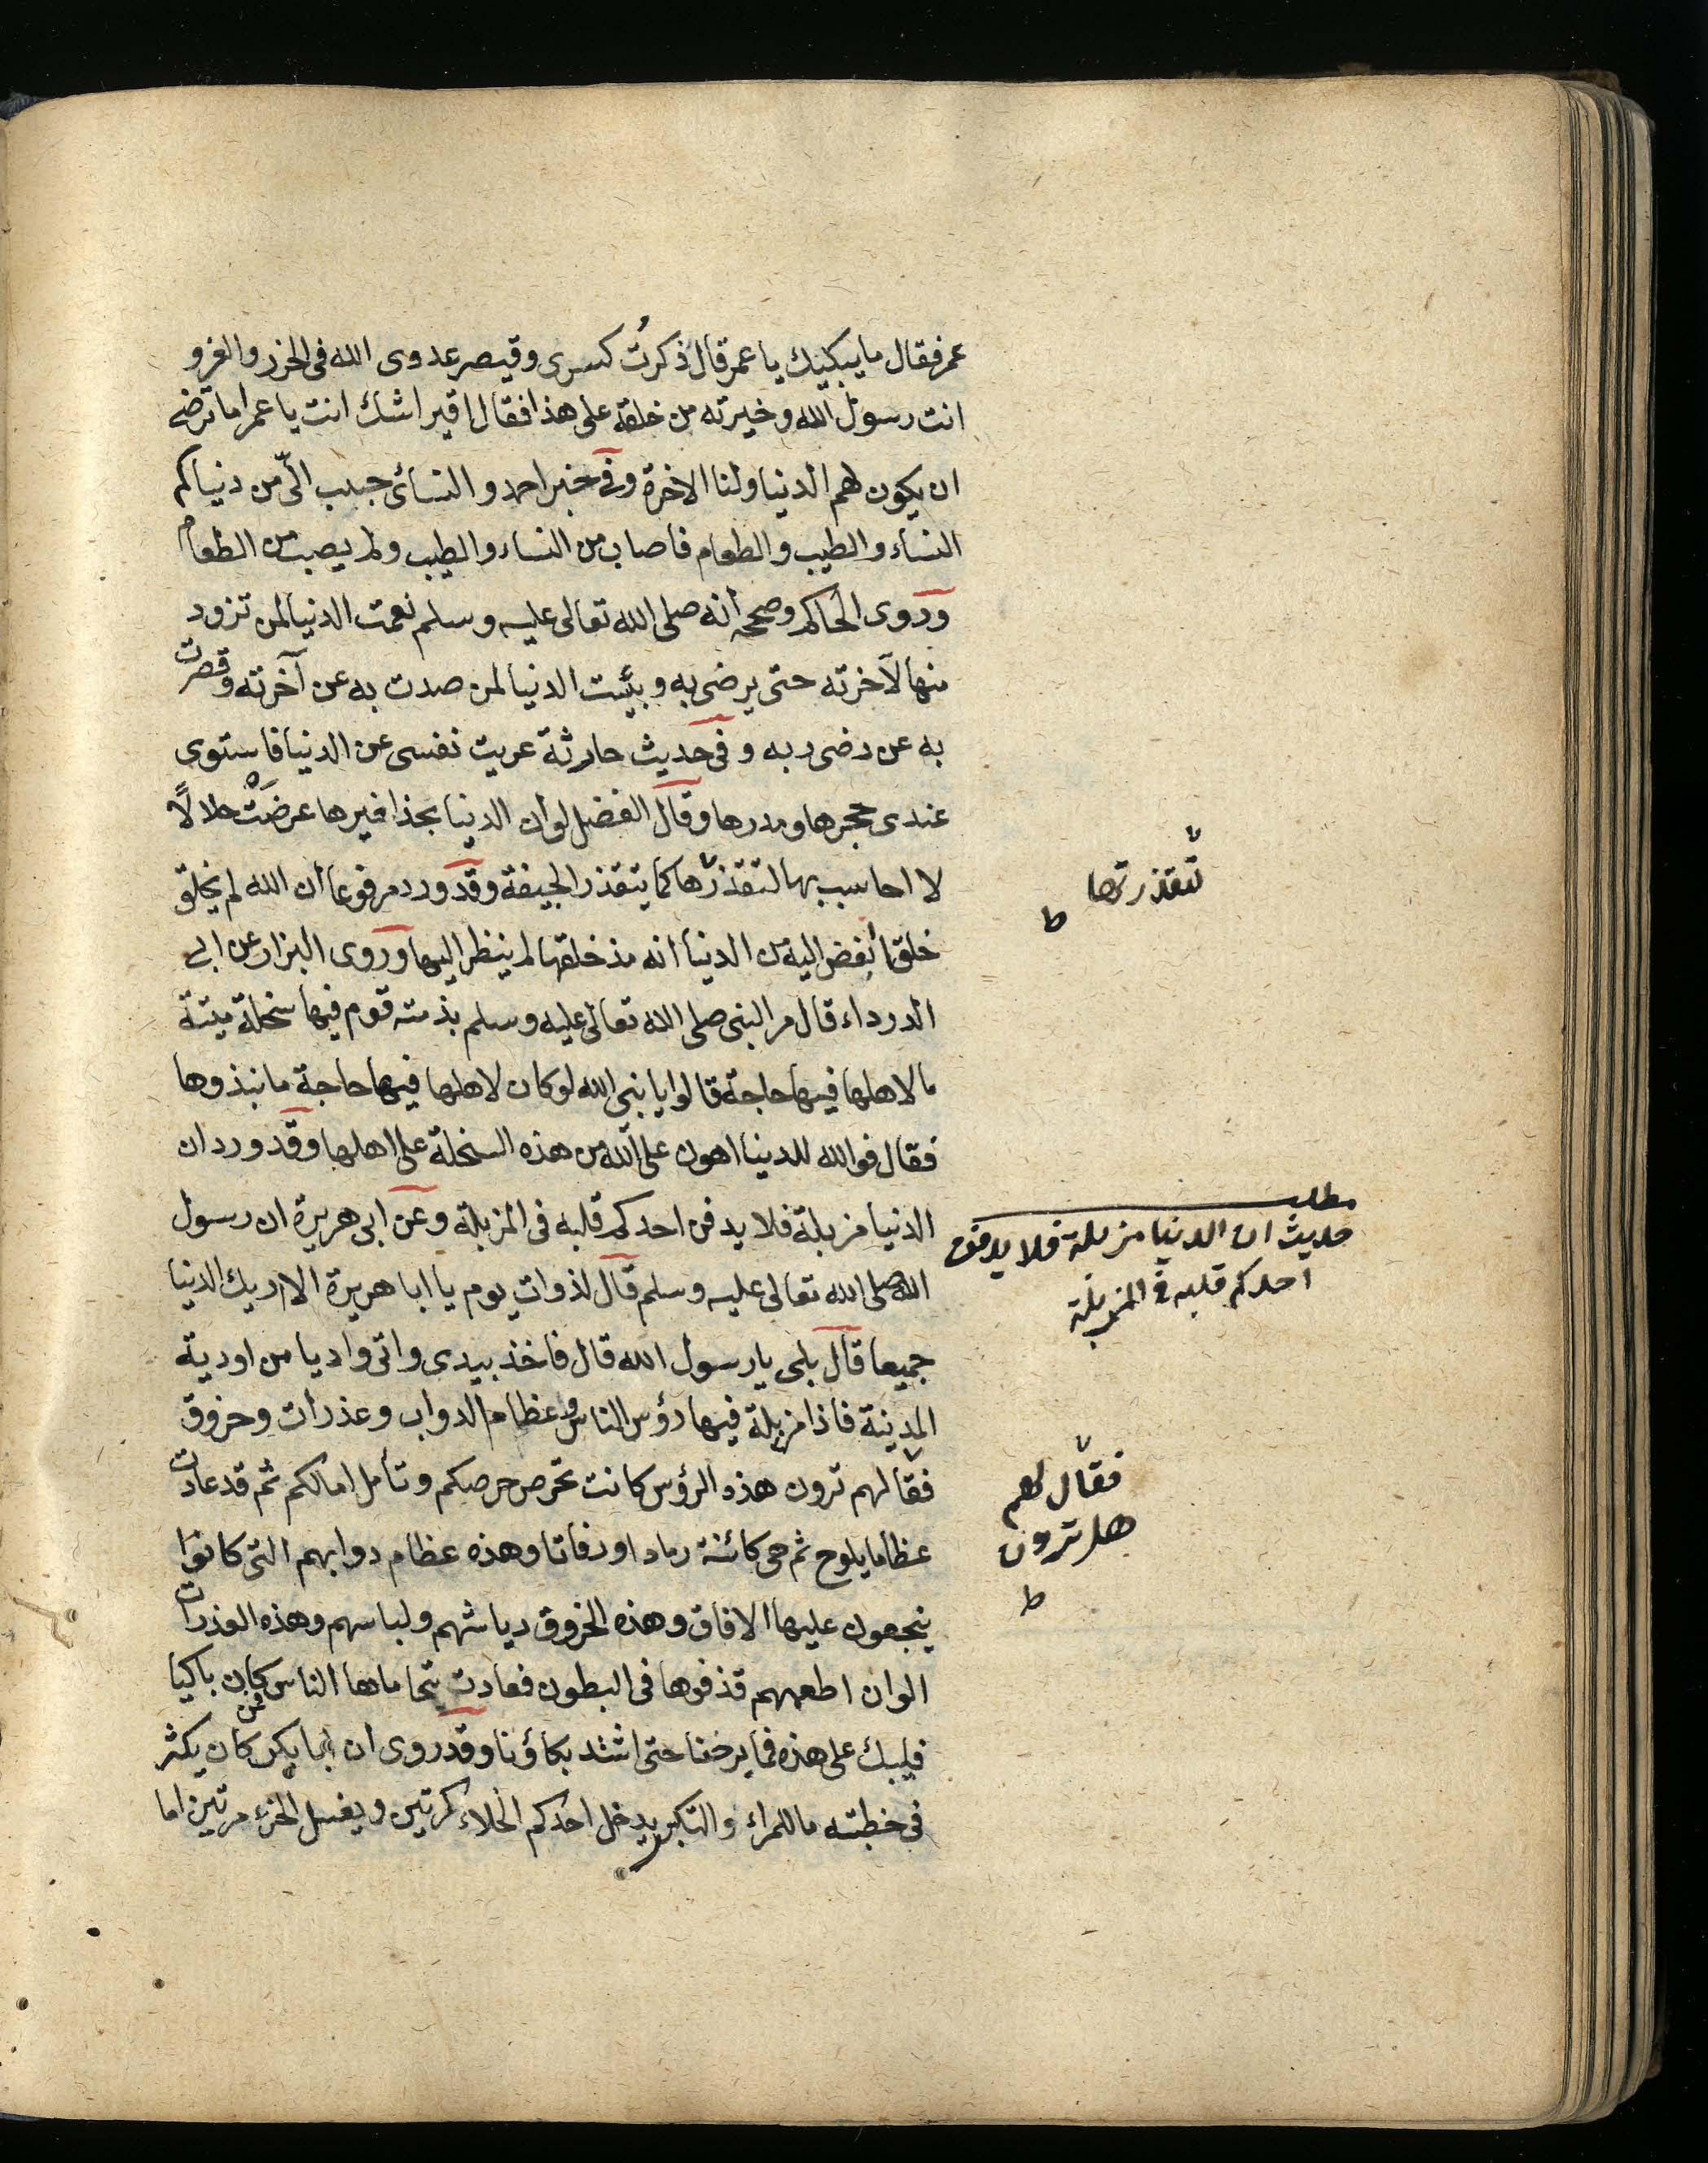 عمر فقال ما يبكيك يا عمر قال ذكرت كسرى وقيصر عدوى الله فى الخز والغزو
انت رسول الله وخيرته من خلقه على هذا فقال افى شك انت يا عمر اما ترضى
ان يكون لهم الدنيا ولنا الاخرة وفى خبر احمد والنسائى حبب الىّ من دنياكم
النساء والطيب والطعام فاصاب من النساء والطيب ولم يصب من الطعام
وروى الحاكم وصححه انه صلى الله تعالى عليه وسلم نعمت الدنيا لمن تزود
منها لآخرته حتى يرضى به وبئست الدنيا لمن صدت به عن آخرته وقصرت
به عن رضى ربه وفى حديث حارثة عريت نفسى عن الدنيا فاستوى
عندى حجرها ومدرها وقال الفضل لو ان الدنيا بحذافيرها عرضت حلالًا
لا احاسب بها لتقذرها كما يتقذر الجيفة وقد ورد مرفوعا ان الله لم يخلق
خلقا ابغض اليه من الدنيا انه مذ خلقها لم ينظر اليها وروى البزار عن ابى
الدرداء قال مر النبى صلى الله تعالى عليه وسلم بذمته قوم فيها سخلة ميتة
ما لاهلها فيها حاجة قالوا يا نبى الله لو كان لاهلها فيها حاجة ما نبذوها
فقال فوالله للدنيا اهون على الله من هذه السخلة على اهلها وقد ورد ان
الدنيا مزبلة فلا يدفن احدكم قلبه فى المزبلة وعن ابى هريرة ان رسول
الله صلى الله تعالى عليه وسلم قال لذوات يوم يا ابا هريرة الا اريك الدنيا
جميعا قال بلى يا رسول الله قال فاخذ بيدى واتى واديا من اودية
المدينة فاذا مزبلة فيها رؤس الناس وعظام الدواب وعذرات وخروق
فقا لهم ترون هذه الرؤس كانت تحرص حرصكم وتأمل امالكم ثم قد عادت
عظاما يلوح ثم حى كائنة رماد او رفاتا وهذه عظام دوابهم التى كانوا
ينجعون عليها الافاق وهذه الخروق رياشهم ولباسهم وهذه العذرات
الوان اطعمهم قذفوها فى البطون فعادت تتحاماها الناس فمن كان باكيا
فليبك على هذه فما برحنا حتى اشتد بكاؤنا وقد روى ان ابا بكر كان يكثر
فى خطبته ما للمراء والتكبر يدخل احدكم الخلاء كرتين ويغسل الخرء مرتين اما
لتقذرتها
ط
مطلب
حديث ان الدنيا مزبلة فلا يدفن
احدكم قلبه فى المزبلة
فقال لهم
هل ترون
ط